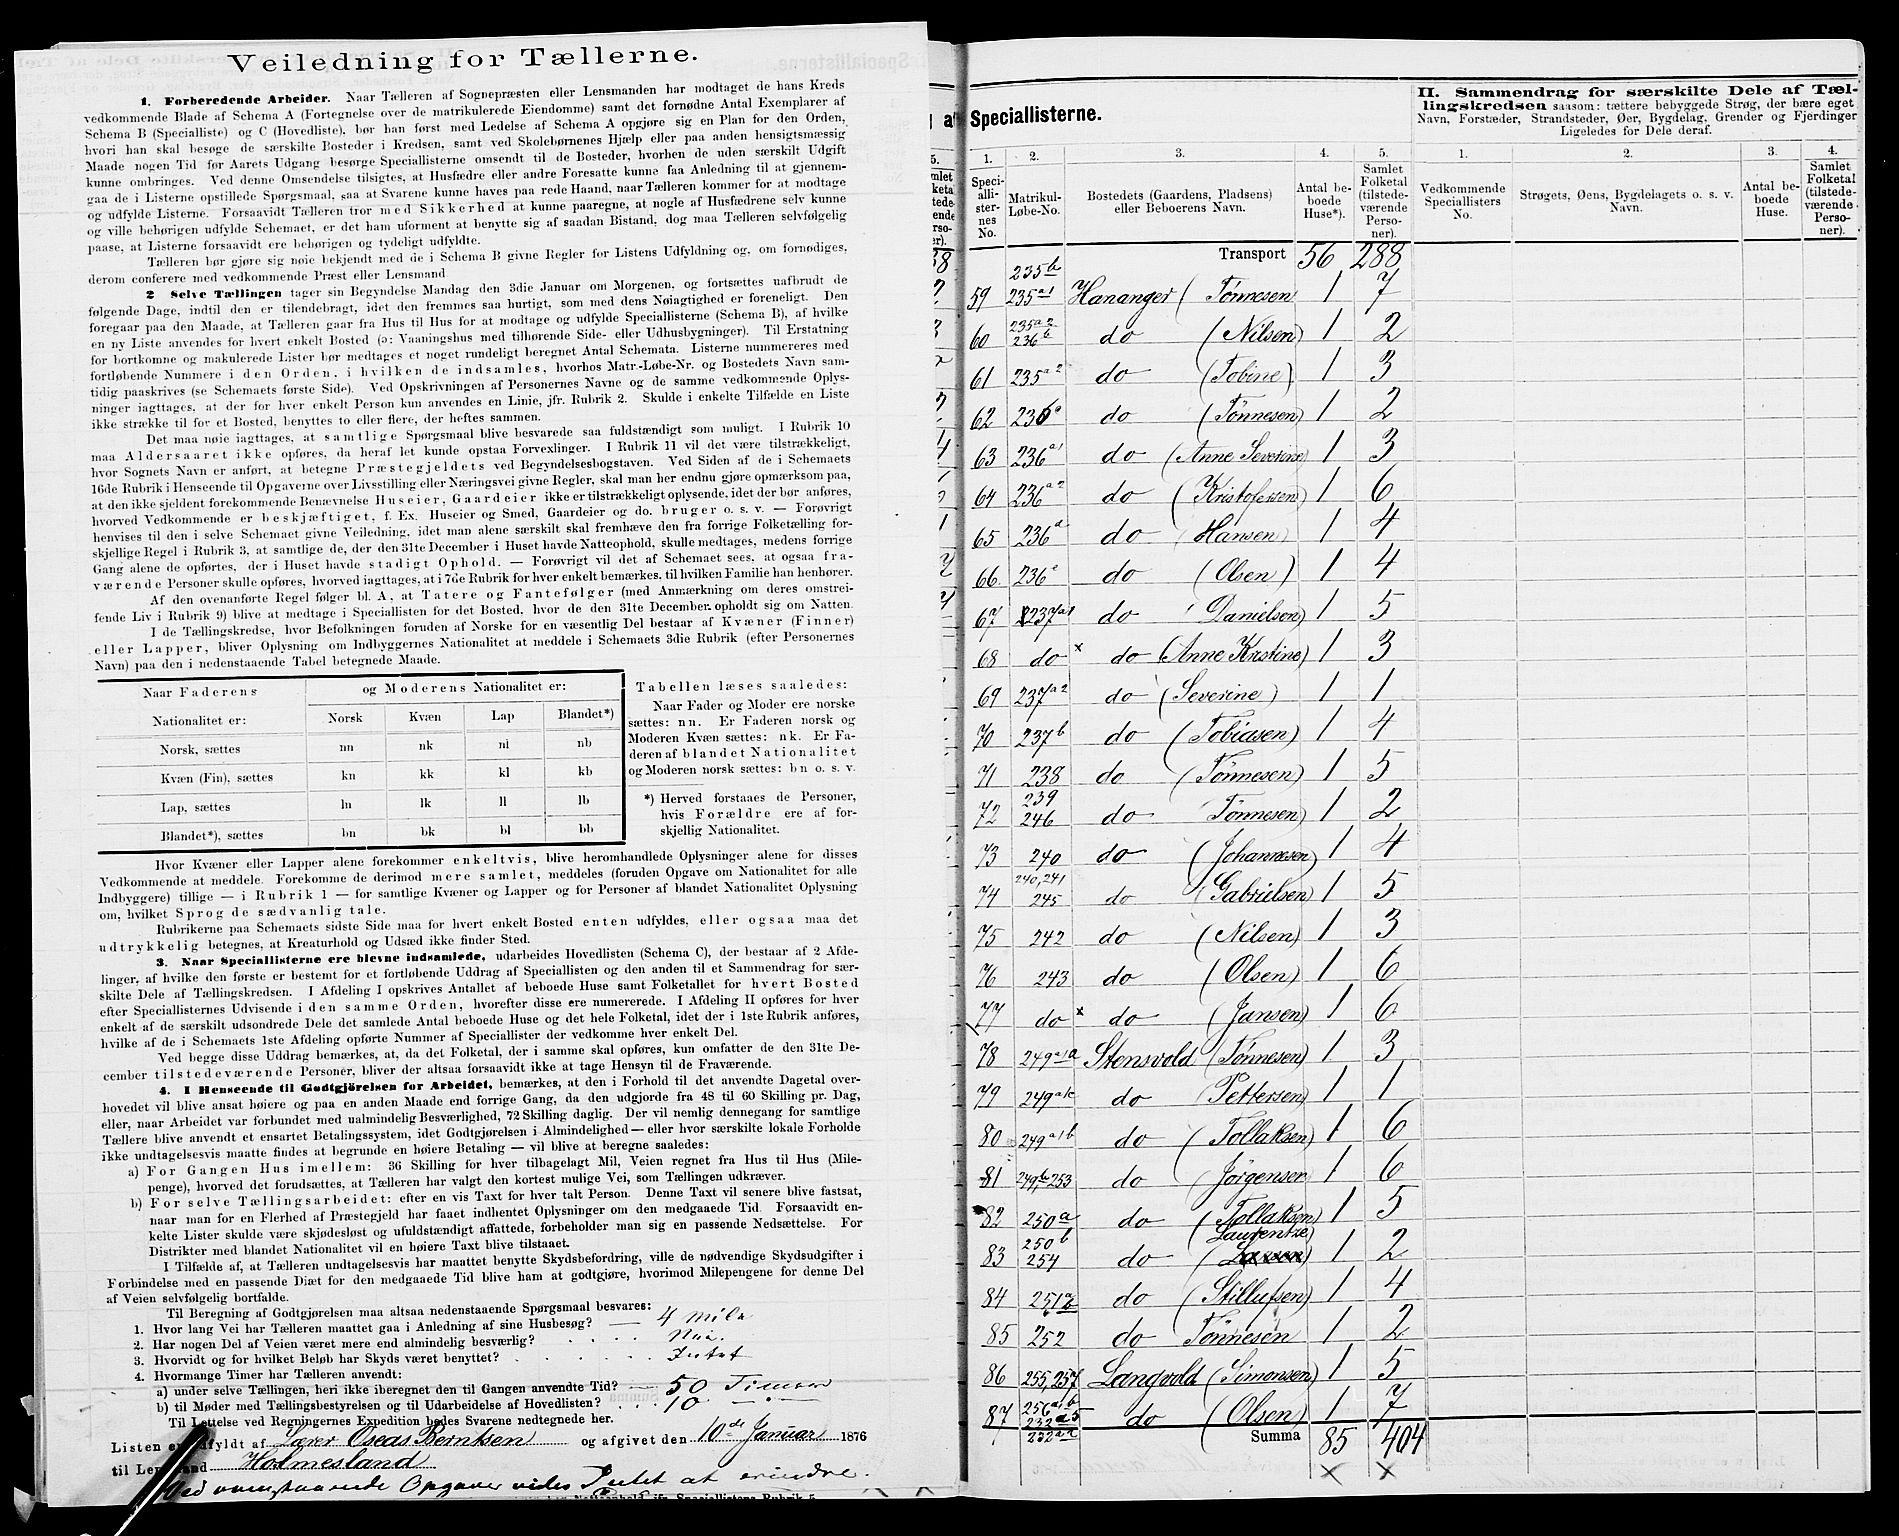 Veiledning for Tællerne.
1. Forberedende Arbeider. Naar Tælleren af Sognepræsten eller Lensmanden har modtaget de hans Kreds
vedkommende Blade af Schema A (Fortegnelse over de matrikulerede Eiendomme) samt det fornødne Antal Exemplarer af
Schema B (Specialliste) og C (Hovedliste), bør han først med Ledelse af Schema A opgjøre sig en Plan for den Orden,
hvori han skal besøge de særskilte Bosteder i Kredsen, samt ved Skolebørnenes Hjælp eller paa anden hensigtsmæssig
Maade nogen Tid før Aarets Udgang besørge Speciallisterne omsendt til de Bosteder, hvorhen de uden særskilt Udgift
kunne ombringes. Ved denne Omsendelse tilsigtes, at Husfædre eller andre Foresatte kunne faa Anledning til at gjennem-
gaa de i Listerne opstillede Spørgsmaal, saa at Svarene kunne haves paa rede Haand, naar Tælleren kommer for at modtage
og udfylde Listerne. Forsaavidt Tælleren tror med Sikkerhed at kunne paaregne, at nogle af Husfædrene selv kunne
og ville behørigen udfylde Schemaet, er det ham uforment at benytte sig af saadan Bistand, dog maa Tælleren selvfølgelig
paase, at Listerne forsaavidt ere behørigen og tydeligt udfyldte.
Tælleren bør gjøre sig nøie bekjendt med de i Schema B givne Regler for Listens Udfyldning og, om fornødiges,
derom conferere med vedkommende Præst eller Lensmand
2 Selve Tællingen tager sin Begyndelse Mandag den 3die Januar om Morgenen, og fortsættes uafbrudt de
følgende Dage, indtil den er tilendebragt, idet den fremmes saa hurtigt, som med dens Nøiagtighed er foreneligt. Den
foregaar paa den Maade, at Tælleren gaar fra Hus til Hus for at modtage og udfylde Speciallisterne (Schema B), af hvilke
en ny Liste anvendes for hvert enkelt Bosted (ɔ: Vaaningshus med tilhørende Side- eller Udhusbygninger). Til Erstatning
for bortkomne og makulerede Lister bør medtages et noget rundeligt beregnet Antal Schemata. Listerne nummereres med
fortløbende Nummere i den Orden, i hvilken de indsamles, hvorhos Matr.-Løbe-Nr. og Bostedets Navn sam-
tidig paaskrives (se Schemaets første Side). Ved Opskrivningen af Personernes Navne og de samme vedkommende Oplys-
ninger iagttages, at der for hver enkelt Person kun anvendes en Linie, jfr. Rubrik 2. Skulde i enkelte Tilfælde en Liste
ikke strække til for et Bosted, benyttes to eller flere, der heftes sammen.
Det maa nøie iagttages, at samtlige Spørgsmaal blive besvarede saa fuldstændigt som muligt. I Rubrik 10
maa Aldersaaret ikke opføres, da heraf let kunde opstaa Forvexlinger. I Rubrik 11 vil det være tilstrækkeligt,
hvor Sognets Navn er anført, at betegne Præstegjeldets ved Begyndelsesbogstaven. Ved Siden af de i Schemaets
16de Rubrik i Henseende til Opgaverne over Livsstilling eller Næringsvei givne Regler, skal man her endnu gjøre opmærksom paa,
at den ikke sjeldent forekommende Benævnelse Huseier, Gaardeier ikke er tilstrækkeligt oplysende, idet der bør anføres,
hvorved Vedkommende er beskjæftiget, f. Ex. Huseier og Smed, Gaardeier og do. bruger o. s. v. — Forøvrigt
henvises til den i selve Schemaet givne Veiledning, idet man alene særskilt skal fremhæve den fra forrige Folketælling for-
skjellige Regel i Rubrik 3, at samtlige de, der den 31te December i Huset havde Natteophold, skulle medtages, medens forrige
Gang alene de opførtes, der i Huset havde stadigt Ophold. — Forøvrigt vil det af Schemaet sees, at ogsaa fra-
værende Personer skulle opføres, hvorved iagttages, at i 7de Rubrik for hver enkelt bemærkes, til hvilken Familie han henhører.
Af den ovenanførte Regel følger bl. A, at Tatere og Fantefølger (med Anmærkning om deres omstrei-
fende Liv i Rubrik 9) blive at medtage i Speciallisten for det Bosted, hvor de den 31te December. opholdt sig om Natten.
I de Tællingskredse, hvor Befolkningen foruden af Norske for en væsentlig Del bestaar af Kvæner (Finner)
eller Lapper, bliver Oplysning om Indbyggernes Nationalitet at meddele i Schemaets 3die Rubrik (efter Personernes
Navn) paa den i nedenstaaende Tabel betegnede Maade.
Naar Faderens og Moderens Nationalitet er:
Nationalitet er: Norsk Kvæn Lap Blandet*)
Norsk, sættes nn nk nl nb
Kvæn (Fin), sættes kn kk kl kb
Lap, sættes ln lk ll lb
Blandet*), sættes bn bk bl bb
Tabellen læses saaledes:
Naar Fader og Moder ere norske
sættes: nn. Er Faderen norsk og
Moderen Kvæn sættes: nk. Er Fa-
deren af blandet Nationalitet
og Moderen norsk sættes: bn o. s. v.
*) Herved forstaaes de Personer,
hvis Forældre ere af for-
skjellig Nationalitet.
Hvor Kvæner eller Lapper alene forekommer enkeltvis, blive heromhandlede Oplysninger alene for disses
Vedkommende at meddele. Forekomme de derimod mere samlet, meddeles (foruden Opgave om Nationalitet for alle
Indbyggere) tillige — i Rubrik 1 — for samtlige Kvæner og Lapper og for Personer af blandet Nationalitet Oplysning
om, hvilket Sprog de sædvanlig tale.
Rubrikerne paa Schemaets sidste Side maa for hvert enkelt Bosted enten udfyldes, eller ogsaa maa det
udtrykkelig betegnes, at Kreaturhold og Udsæd ikke finder Sted.
3. Naar Speciallisterne ere blevne indsamlede, udarbeides Hovedlisten (Schema C), der bestaar af 2 Afde-
linger, af hvilke den første er bestemt for et fortløbende Uddrag af Speciallisten og den anden til et Sammendrag for sær-
skilte Dele af Tællingskredsen. I Afdeling I opskrives Antallet af beboede Huse samt Folketallet for hvert Bosted
efter Speciallisternes Udvisende i den samme Orden, hvorefter disse ere numererede. I Afdeling II opføres for hver
enkelt af de særskilt udsondrede Dele det samlede Antal beboede Huse og det hele Folketal, idet der i 1ste Rubrik anføres,
hvilke af de i Schemaets 1ste Afdeling opførte Nummer af Speciallister der vedkomme hver enkelt Del.
Ved begge disse Uddrag bemærkes, at, da det Folketal, der i samme skal opføres, kun omfatter de den 31te De-
cember tilstedeværende Personer, bliver der altsaa forsaavidt ikke at tage Hensyn til de Fraværende.
4. I Henseende til Godtgjörelsen for Arbeidet, bemærkes, at den i Forhold til det anvendte Dagetal over-
hovedet vil blive ansat høiere og paa en anden Maade end forrige Gang, da den udgjorde fra 48 til 60 Skilling pr. Dag,
eller, naar Arbeidet var forbundet med ualmindelig Besværlighed, 72 Skilling daglig. Der vil nemlig dennegang for samtlige
Tællere blive anvendt et ensartet Betalingssystem, idet Godtgjørelsen i Almindelighed — eller hvor særskilte lokale Forholde
ikke undtagelsesvis maatte findes at begrunde en høiere Betaling — vil blive at beregne saaledes:
a) For Gangen Hus imellem: 36 Skilling for hver tilbagelagt Mil, Veien regnet fra Hus til Hus (Mile-
penge), hvorved det forudsættes, at Tælleren har valgt den kortest mulige Vei, som Tællingen udkræver.
b) For selve Tællingsarbeidet: efter en vis Taxt for hver talt Person. Denne Taxt vil senere blive fastsat,
naar man for en Flerhed af Præstegjeld har faaet indhentet Oplysninger om den medgaaede Tid. Forsaavidt en-
kelte Lister skulde være skjødesløst og ufuldstændigt affattede, forbeholder man sig en passende Nedsættelse. For
Distrikter med blandet Nationalitet vil en høiere Taxt blive tilstaaet.
I Tilfælde af, at Tælleren undtagelsesvis har maattet benytte Skydsbefordring, ville de nødvendige Skydsudgifter i
Forbindelse med en passende Diæt for den medgaaede Tid blive ham at godtgjøre, hvorimod Milepengene for denne Del
af Veien selvfølgelig bortfalde.
Til Beregning af Godtgjørelsen maa altsaa nedenstaaende Spørgsmaal besvares:
1. Hvor lang Vei har Tælleren maattet gaa i Anledning af sine Husbesøg? — 4 Mile
2. Har nogen Del af Veien været mere end almindelig besværlig? . . . . Nei.
3. Hvorvidt og for hvilket Beløb har Skyds været benyttet? . . . . Intet
4. Hvormange Timer har Tælleren anvendt:
a) under selve Tællingen, heri ikke iberegnet den til Gangen anvendte Tid? — 50 Timer
b) til Møder med Tællingsbestyrelsen og til Udarbeidelse af Hovedlisten? . . . 10 — " —
Til Lettelse ved Regningernes Expedition bedes Svarene nedtegnede her.
Listen er udfyldt af Lærer Oseas Berntsen og afgivet den 10de Januar 1876
til Lensmand Holmesland
Ved ovenstaaende Opgaver vides Intet at erindre.
Speciallisterne.
1. 2. 3. 4. 5.
Speci-
alli-
ster-
nes
No.
Matrikul-
Løbe-No.
Bostedets (Gaardens, Pladsens)
eller Beboerens Navn.
Antal be-
boede
Huse*).
Samlet
Folketal
(tilstede-
værende
Perso-
ner).
Transport 56 288
235b
59 235a1 Hananger (Tönnesen) 1 7
60 235a2 236b do (Nilsen) 1 2
61 235a2 do (Tobine) 1 3
62 236a do (Tönnesen) 1 2
63 236a1 do (Anne Severine) 1 3
64 236a2 do (Kristofersen) 1 6
65 236a do (Hansen) 1 4
66. 236a do (Olsen) 1 4
67 237a1 do (Danielsen) 1 5
68 do x do (Anne Kristine) 1 3
69 237a2 do (Severine) 1 1
70 237b do (Tobiasen) 1 4
71 238 do (Tönnesen) 1 5
72 239 246 do Tönnesen) 1 2
73 240 do (Johannesen) 1 4
74 240, 241 245 do (Gabrielsen) 1 5
75 242 do (Nilsen) 1 3
76 243 do (Olsen) 1 6
77 do x do (Jansen) 1 6
78 249a1a Stensvold (Tönnesen) 1 3
79 249a1c do (Pettersen) 1 1
80 249a1b do (Tollaksen) 1 6
81 253 do (Jörgensen) 1 6
82 250a do (Tollaksen) 1 5
83 250b 254 do (Laurentze) 1 2
84 251 do (Stillufsen) 1 4
85 252 do Tönnesen 1 2
86 255, 257 Langvold (Simonsen) 1 5
87 256a1b 232a5 do (Olsen) 1 7
232a2 Summa 85 404
x x
II. Sammendrag for særskilte Dele af Tæl-
lingskredsen saasom: tættere bebyggede Strøg, der bære eget
Navn, Forstæder, Strandsteder, Øer, Bygdelag, Grender og Fjerdinger
Ligeledes for Dele deraf.
1. 2. 3. 4.
Vedkommende
Speciallisters
No.
Strøgets, Øens, Bygdelagets o. s. v.
Navn.
Antal be-
boede
Huse.
Samlet
Folketal
(tilstede-
værende
Perso-
ner).